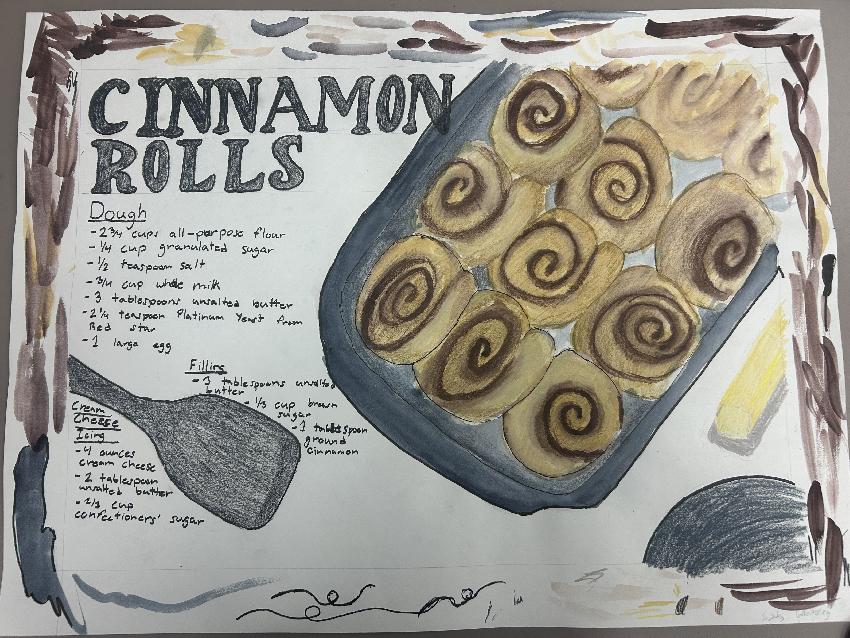 CINNAMON
ROLLS
Dough
- 2 3/4 cups all-purpose flour
- 1/4 cup granulated sugar
- 1/2 teaspoon salt
- 3/4 cup whole milk
- 3 tablespoons unsalted butter
- 2 1/4 teaspoon Platinum Yeast from
Red star
- 1 large egg
Filling
- 3 tablespoons unsalted
butter
1/3 cup brown
sugar
- 1 tablespoon
ground
Cinnamon
Cream
Cheese
Icing
- 4 ounces
cream cheese
- 2 tablespoon
unsalted butter
- 2/3 cup
confectioners' sugar